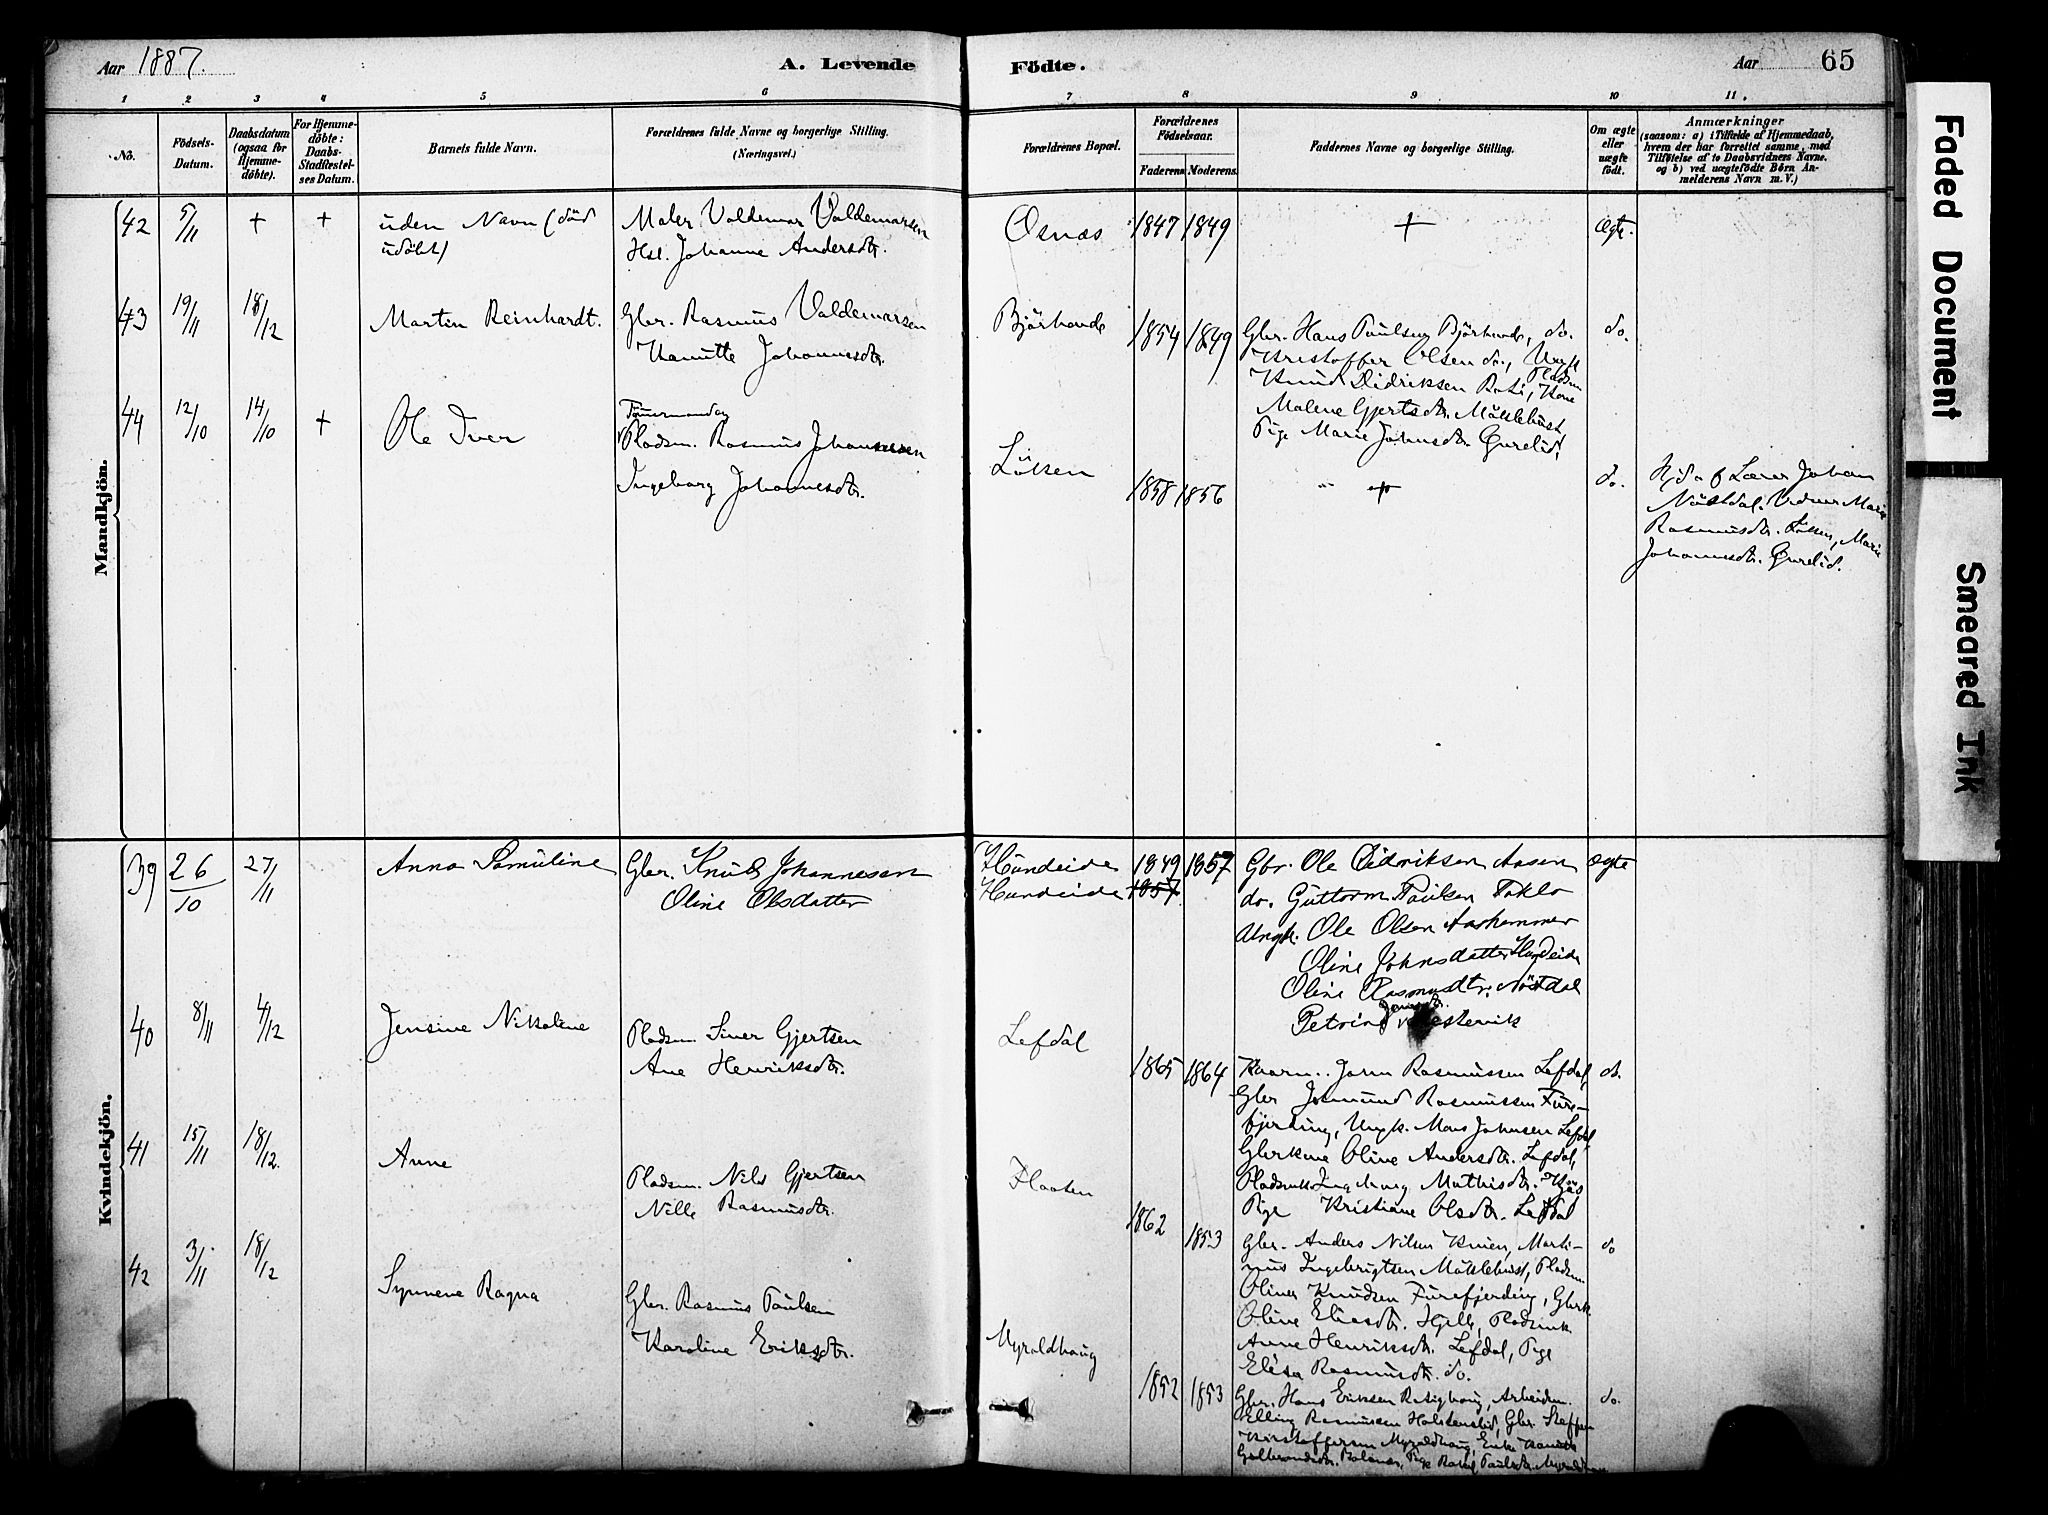 Aar 1887. A. Levende Födte. Aar 65
1 2 3 4 5 6 7 8 9 10 11.
No.
Födsels-Datum.
Daabsdatum (ogsaa for Hjemme-döbte).
For Hjemme-döbte: Daabs-Stadfæstel-ses Datum.
Barnets fulde Navn.
Forældrenes fulde Navne og borgerlige Stilling. (Næringsvei.)
Forældrenes Bopæl.
Forældrenes Födselsaar.
Faderens Moderens.
Faddernes Navne og borgerlige Stilling.
Om ægte eller uægte födt.
Anmærkninger
(saasom: a) i Tilfælde af Hjemmedaab,
hvem der har forrettet samme, med
Tilföielse af to Daabsvidners Navne.
og b) ved uægtefödte Börn An-
melderens Navn m. V.)
Mandkjön.
42 5/11 + + uden Navn (död
udöbt)
Maler Valdemar Valdemarsen
Hst. Johanne Andersdtr.
Osnæs 1847 1849 + ægte.
43 19/11 18/12 Martin Reinhardt.
Gbr. Rasmus Valdemarsen
Hanutte Johannesdtr.
Björhovde 1854 1849
Gbr. Hans Paulsen Björhovde, do.
Kristoffer Olsen do., Ungk
Knud Didriksen Plads
Malene Gjertsdtr. Möklebust
Pige Marie Johnsdtr. Öurelid.
do.
44 12/10 14/10 + Ole Iver
Tömmermand og
Pladsm. Rasmus Johannessen
Ingeborg Johannesdtr.
Lötsen 1858 1856 " + do.
Hjd. af Lærer Johan
Nöstdal. Vidner Marie
Rasmusdtr. Lötsen, Marie
Johannesdtr. Öurelid.
Kvindekjön.
39 26/10 27/11 Anna Samuline
Gbr. Knud Johannesen
Oline Olsdatter
Hundeide 1849 1857
Hundeide 1857
Gbr. Ole Didriksen Aasen ægte
do. Guttorm Paulsen Taklo
Ungk. Ole Olsen Aarhammer
Oline Johnsdatter Hundeide
Oline Rasmusdtr. Nöstdal
Petrine Jensdtr. Vestervik
40 8/11 4/12 Jensine Nikoline
Pladsm. Siver Gjertsen
Ane Henriksdtr.
Lefdal 1865 1864
Kaarm. John Rasmussen Lefdal, do.
Gbr Josmund Rasmussen Fure-
fjerding, Ungk. Mons Johnsen Lefdal
Gbrkone Oline Andersdtr. Lefdal,
Ingeborg Mathisdtr. Kjös
Pige Kristiane Olsdtr. Lefdal
41 15/11 18/12. Anne
Pladsm. Nils Gjertsen
Nille Rasmusdtr.
Flaaten 1862 1853
Gbr. Anders Nilsen Knien, Marti- do
nus Ingebrigtsen Möklebust, Pladsm.
Oliner Knudsen Furefjerding, Gbrk
Oline Eliasdtr. Hjelle, Pladsmk
Anne Henriksdtr. Lefdal, Pige
Elisa Rasmusdtr. do.
42 3/11 18/12 Synneve Ragna
Gbr. Rasmus Paulsen
Karoline Eriksdtr.
Myroldhaug 1852 1853
Gbr. Hans Eriksen Arbeidsm. do.
Elling Rasmussen Gbr. Steffen
Kristoffersen Myroldhaug, Enke
Pige Paulsdtr. Myroldhaug
Faded Document
Smeared Ink